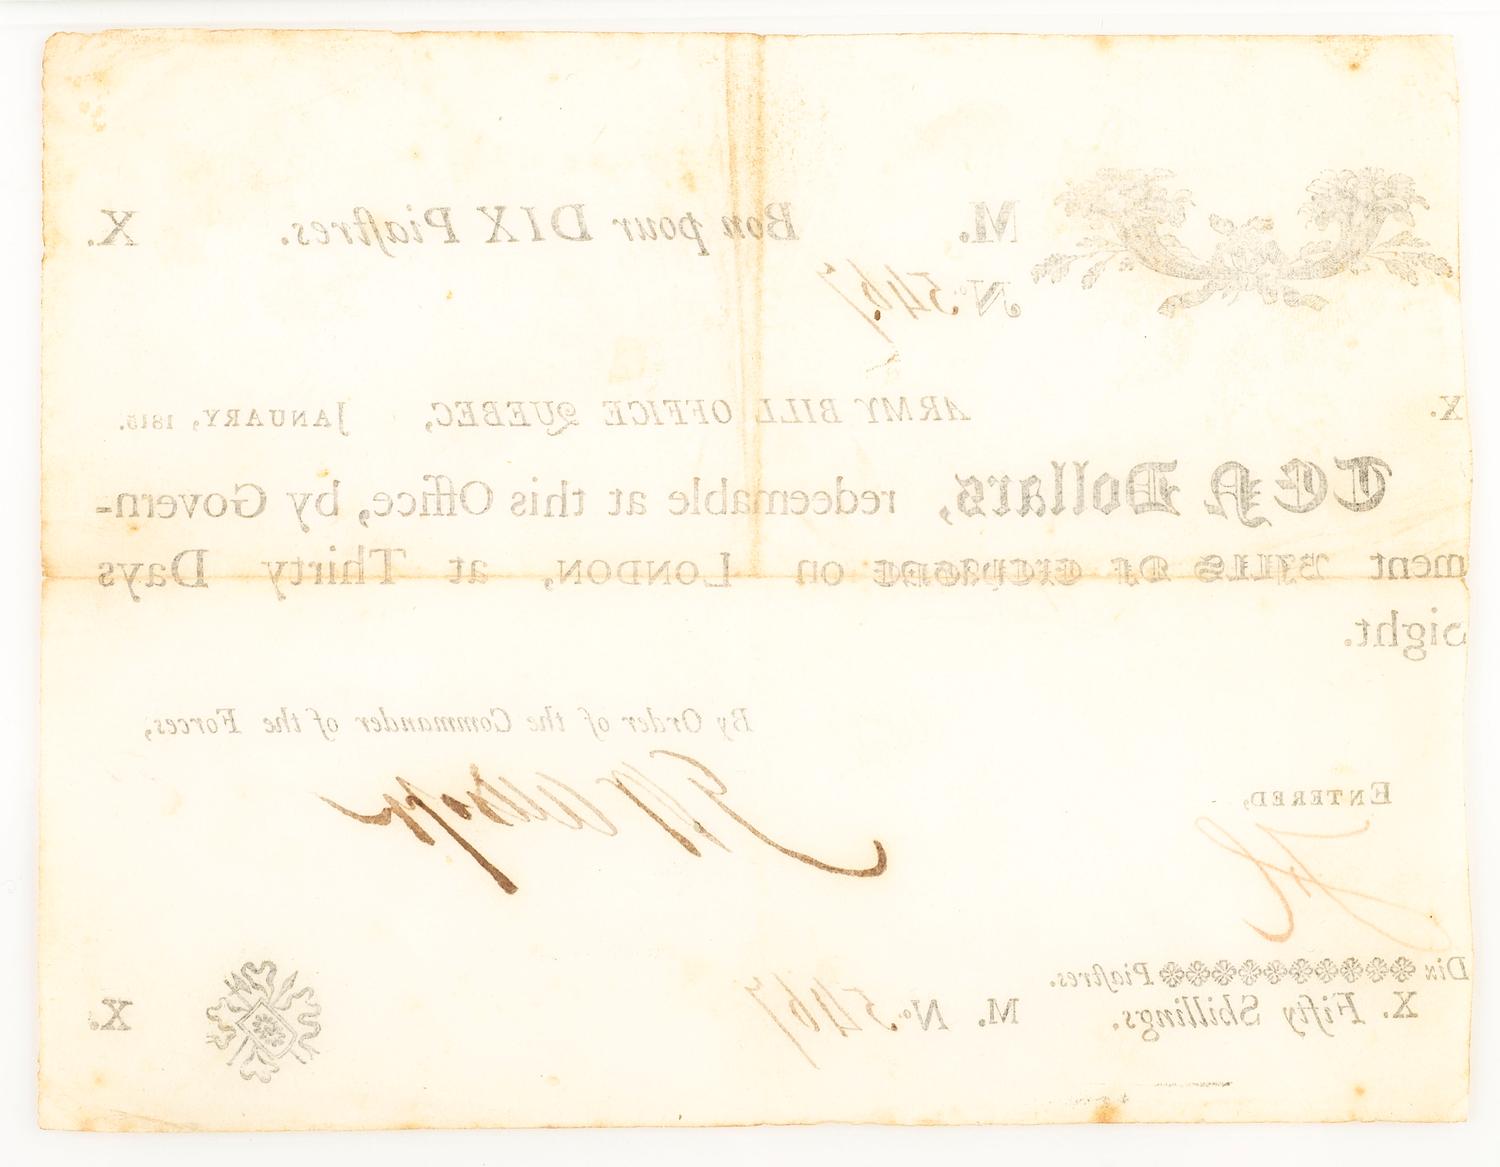 M. Bon pour DIX Piaſtres. X.
No. 5467
X. ARMY BILL OFFICE QUEBEC, JANUARY, 1815.
TEN Dollars, redeemable at this Office, by Govern-
ment BILLS OF EXCHANGE on LONDON, at Thirty Days
Sight.
By Order of the Commander of the Forces,
ENTERED,
Dix Piaſtres.
X. Fifty Shillings. M. No. 5467 X.